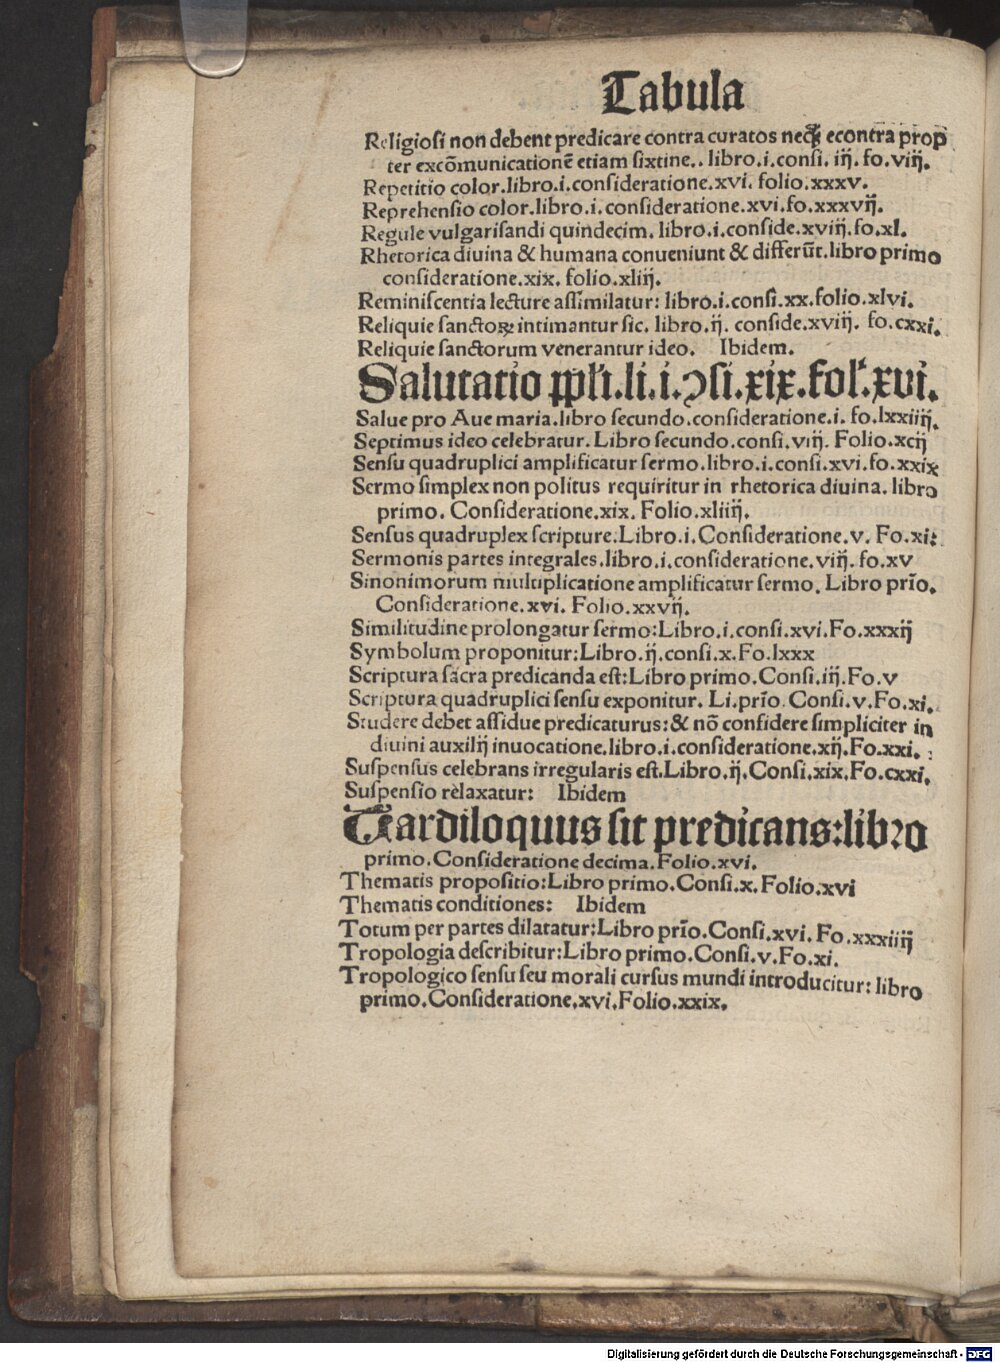 Tabula
Religiosi non debent predicare contra curatos necꝫ econtra prop
ter excōmunicationē etiam sixtine.. libro.i.consi. iij. fo.viij.
Repetitio color.libro.i.consideratione.xvi. folio.xxxv.
Reprehensio color.libro.i. consideratione.xvi.fo.xxxvij.
Regule vulgarisandi quindecim. libro.i.conside.xviij.fo.xl.
Rhetorica diuina & humana conueniunt & differūt.libro primo
consideratione.xix. folio.xliij.
Reminiscentia lecture assimilatur: libro.i.consi.xx.folio.xlvi.
Reliquie sanctoꝝ intimantur sic. libro.ij. conside.xviij. fo.cxxi.
Reliquie sanctorum venerantur ideo. Ibidem.
Salutatio ppłi.li.i.ꝯsi.xix.fol.xvi.
Salue pro Aue maria.libro secundo.consideratione.i. fo.lxxiiij.
Septimus ideo celebratur. Libro secundo.consi.viij. Folio.xcij
Sensu quadruplici amplificatur sermo.libro.i.consi.xvi.fo.xxix
Sermo simplex non politus requiritur in rhetorica diuina. libro
primo. Consideratione.xix. Folio.xliiij.
Sensus quadruplex scripture:Libro.i.Consideratione.v. Fo.xi:
Sermonis partes integrales.libro.i.consideratione.viij.fo.xv
Sinonimorum multiplicatione amplificatur sermo. Libro prīo.
Consideratione.xvi. Folio.xxvij.
Similitudine prolongatur sermo:Libro.i.consi.xvi.Fo.xxxij
Symbolum proponitur:Libro.ij.consi.x.Fo.lxxx
Scriptura sacra predicanda est:Libro primo.Consi.iij.Fo.v
Scriptura quadruplici sensu exponitur. Li.prīo.Consi.v.Fo.xi.
Studere debet assidue predicaturus:& nō confidere simpliciter in
diuini auxilij inuocatione.libro.i.consideratione.xij.Fo.xxi. :
Suspensus celebrans irregularis est.Libro.ij.Consi.xix.Fo.cxxi.
Suspensio relaxatur: Ibidem
Tardiloquus sit predicans:libro
primo.Consideratione decima.Folio.xvi.
Thematis propositio:Libro primo.Consi.x.Folio.xvi
Thematis conditiones: Ibidem
Totum per partes dilatatur:Libro prīo.Consi.xvi.Fo.xxxiiij
Tropologia describitur:Libro primo.Consi.v.Fo.xi.
Tropologico sensu seu morali cursus mundi introducitur: libro
primo.Consideratione.xvi.Folio.xxix.
Digitalisierung gefördert durch die Deutsche Forschungsgemeinschaft - DFG